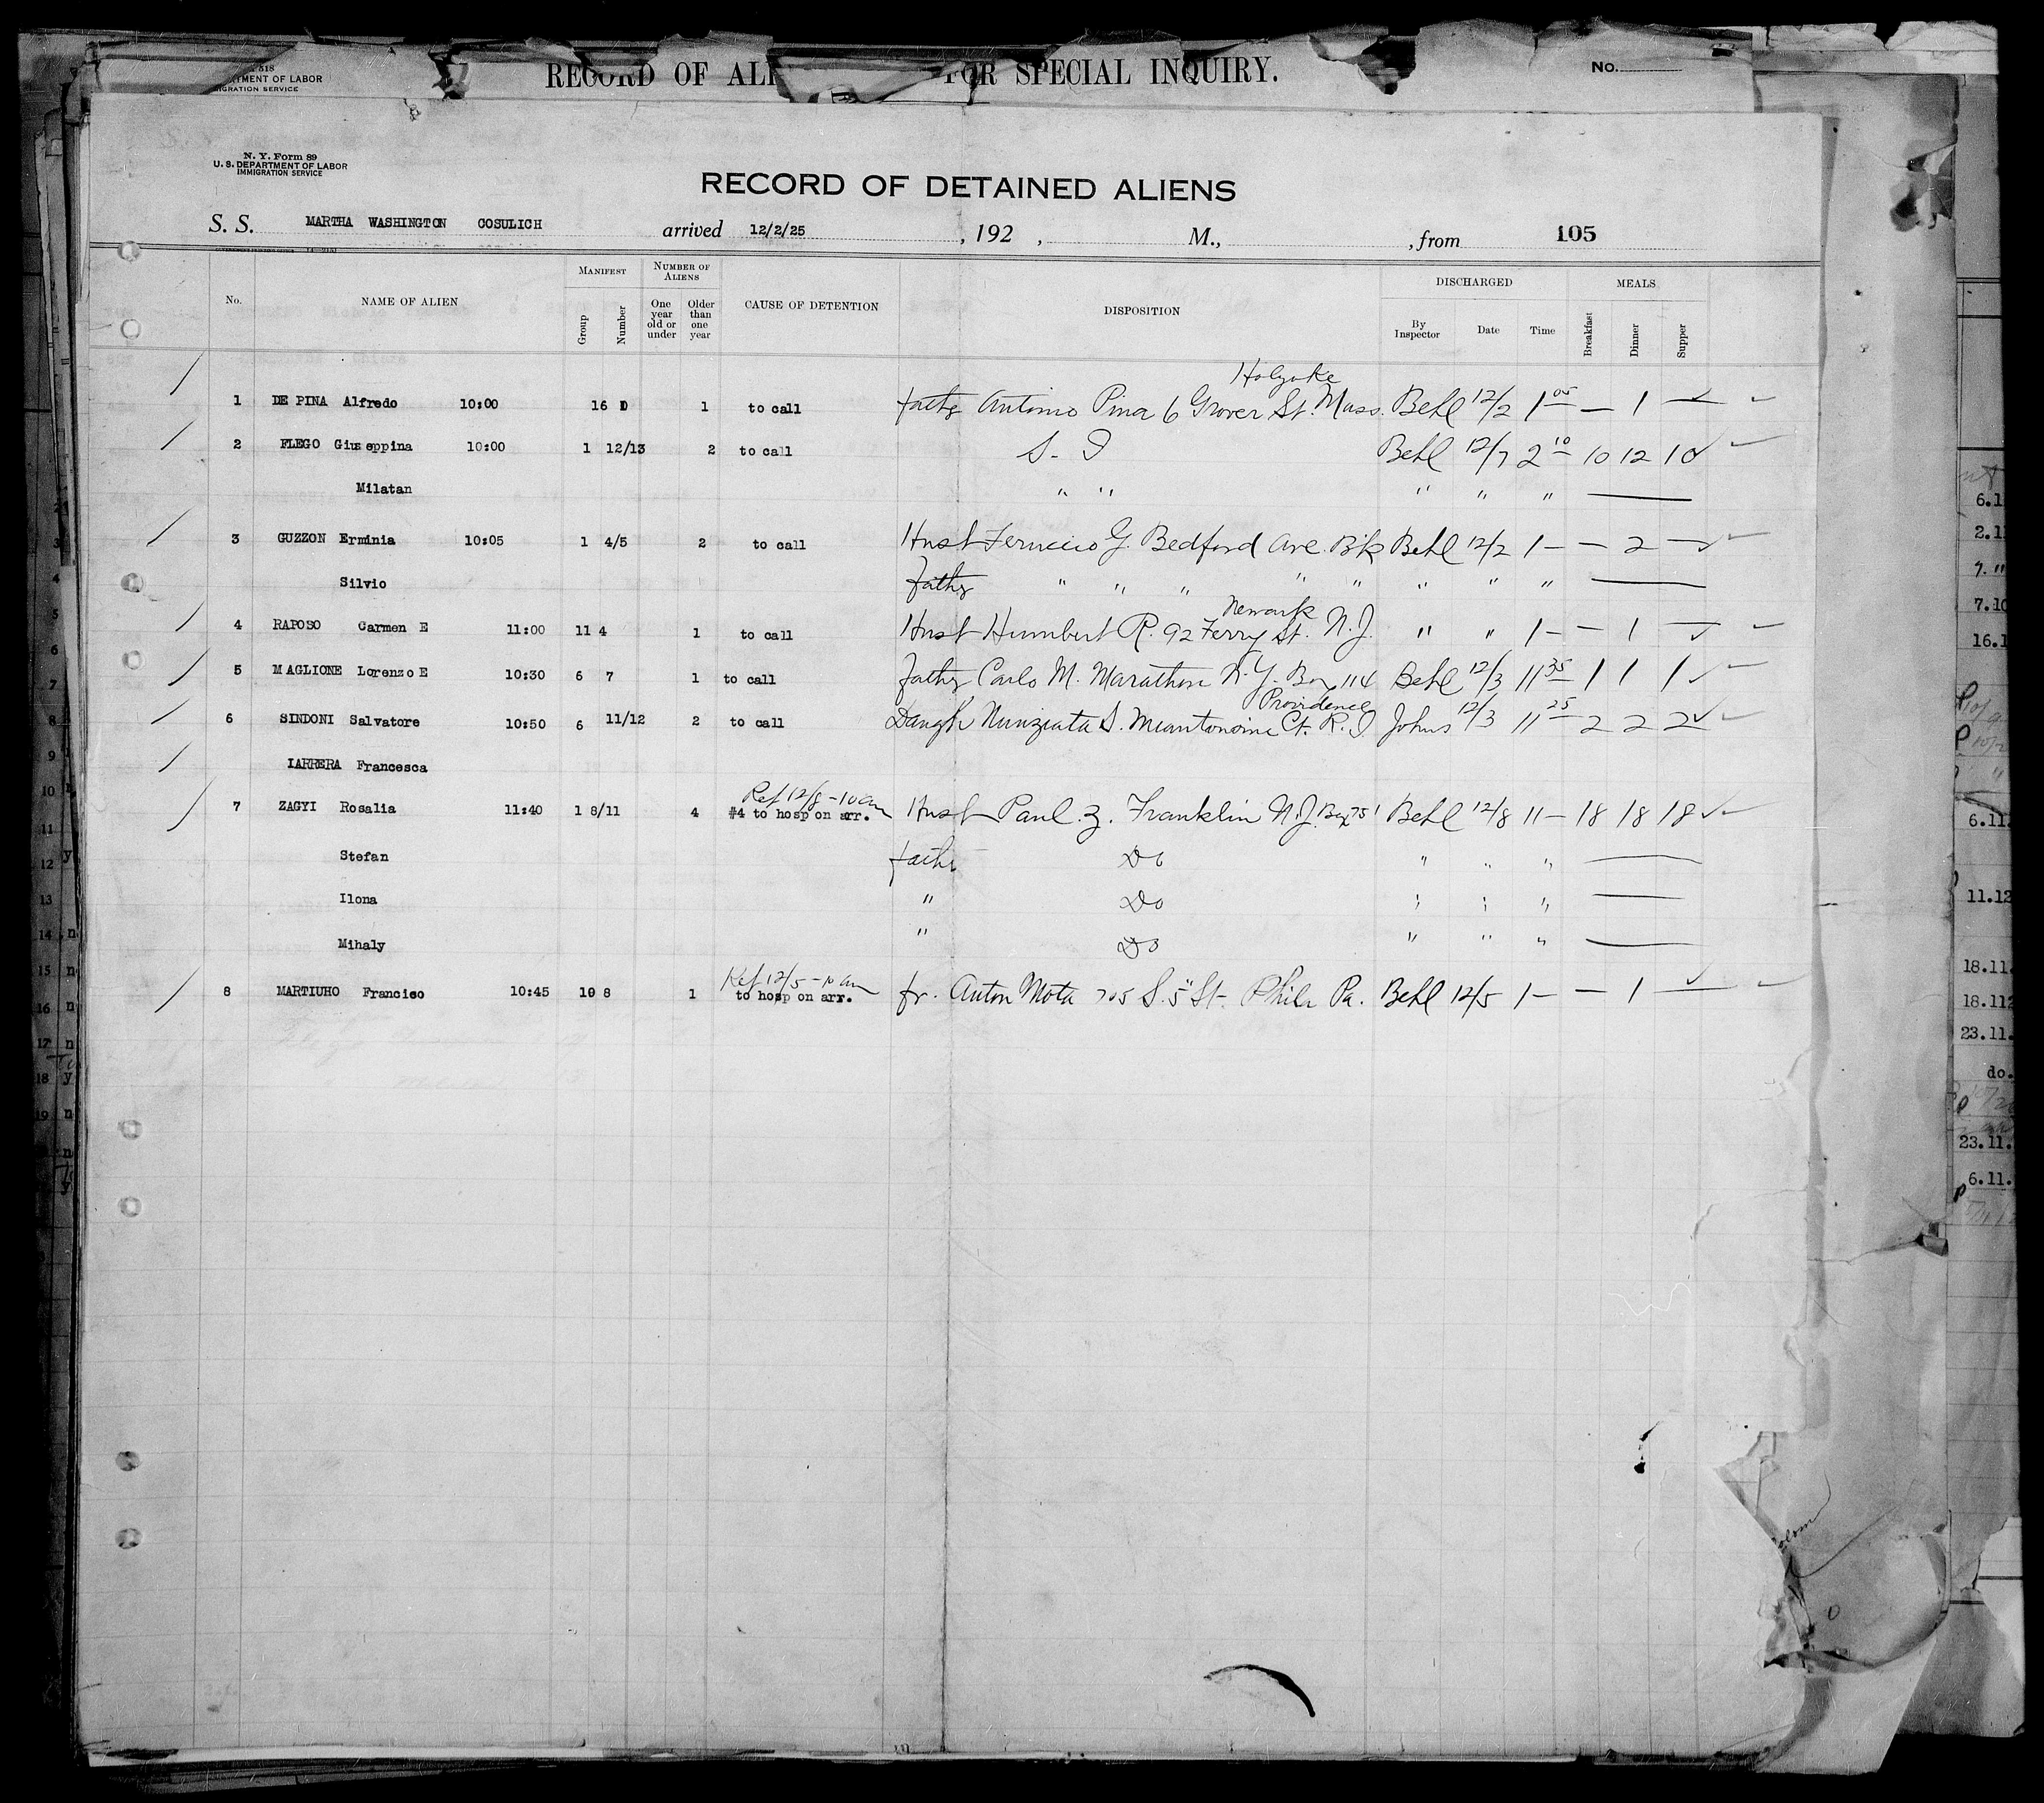 RECORD OF ALI FOR SPECIAL INQUIRY.
No.
518
TMENT OF LABOR
IGRATION SERVICE
N. Y. Form 89
U. S. DEPARTMENT OF LABOR
IMMIGRATION SERVICE
RECORD OF DETAINED ALIENS
S. S. MARTHA WASHINGTON COSULICH arrived 12/2/25, 192 , M., , from 105
No. NAME OF ALIEN MANIFEST Group Number NUMBER OF ALIENS One year old or under Older than one year CAUSE OF DETENTION DISPOSITION DISCHARGED By Inspector Date Time MEALS Breakfast Dinner Supper
Holyoke
1 DE PINA Alfredo 10:00 16 1 to call fathr Antonio Pina 6 Grover St. Mass. Behl 12/2 1 05 — 1 —
2 FLEGO Giuseppina 10:00 1 12/13 2 to call S. I Behl 12/7 2 10 10 12 10
Milatan " " " " "
3 GUZZON Erminia 10:05 1 4/5 2 to call Husb Feruccio G. Bedford Ave. Bk Behl 12/2 1 — — 2 —
Silvio fathr " " " " " " " "
Newark
4 RAPOSO Carmen E 11:00 11 4 1 to call Husb Humbert R. 92 Ferry St. N.J. " " 1 — — 1 —
5 MAGLIONE Lorenzo E 10:30 6 7 1 to call fathr Carlo M. Marathon N.Y. Box 114 Behl 12/3 11 35 1 1 1
Providence
6 SINDONI Salvatore 10:50 6 11/12 2 to call Daugh Nunziata S. Miantonomi Ct. R.I. Johns 12/3 11 25 2 2 2
IARRERA Francesca
Ref 12/8 - 10 am
7 ZAGYI Rosalia 11:40 1 8/11 4 #4 to hosp on arr. Husb Paul Z. Franklin N.J. Box 751 Behl 12/8 11 — 18 18 18
Stefan fathr Do " " "
Ilona " Do " " "
Mihaly " Do " " "
Ref 12/5 - 10 am
8 MARTIUHO Franciso 10:45 10 8 1 to hosp on arr. fr. Anton Mota 705 S. 5" St. Phila Pa. Behl 12/5 1 — — 1 —